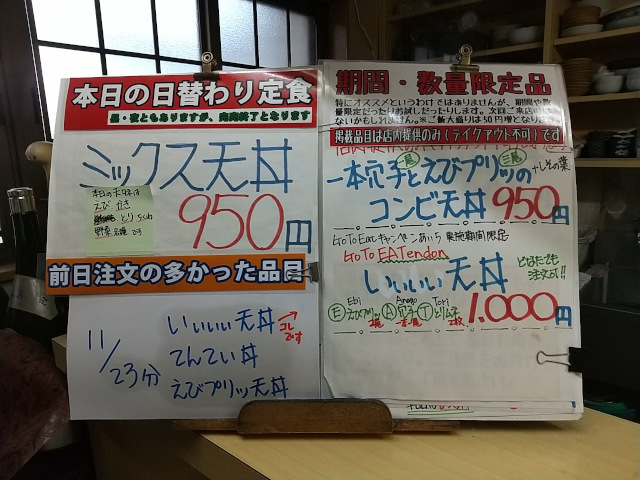 本日の日替わり定食
昼・夜ともありますが、売切終了となります
ミックス天丼
本日の天タネは
えび かき
とり
野菜
950円
前日注文の多かった品目
11/23分
いいいい天丼
コレです
てんてい丼
えびプリッツ天丼
期間・数量限定品
特にオススメというわけではありませんが、期間や数
量限定だったりお試しだったりします。次回ご来店の
ないかもしれません。※ご飯大盛りは50円増となります
掲載品目は店内提供のみ(テイクアウト不可)です
一本穴子とえびプリッツの
一尾
三尾
+しその葉
コンビ天丼 950円
GoToEatキャンペーンあいち 実施期間限定
GoTo EATendon
いいいい天丼
どなたでも
注文可!!
Ebi Anago Tori
Ⓔえびプリッツ Ⓐ穴子 Ⓣとりムネ
2尾 一本 2枚
1,000円